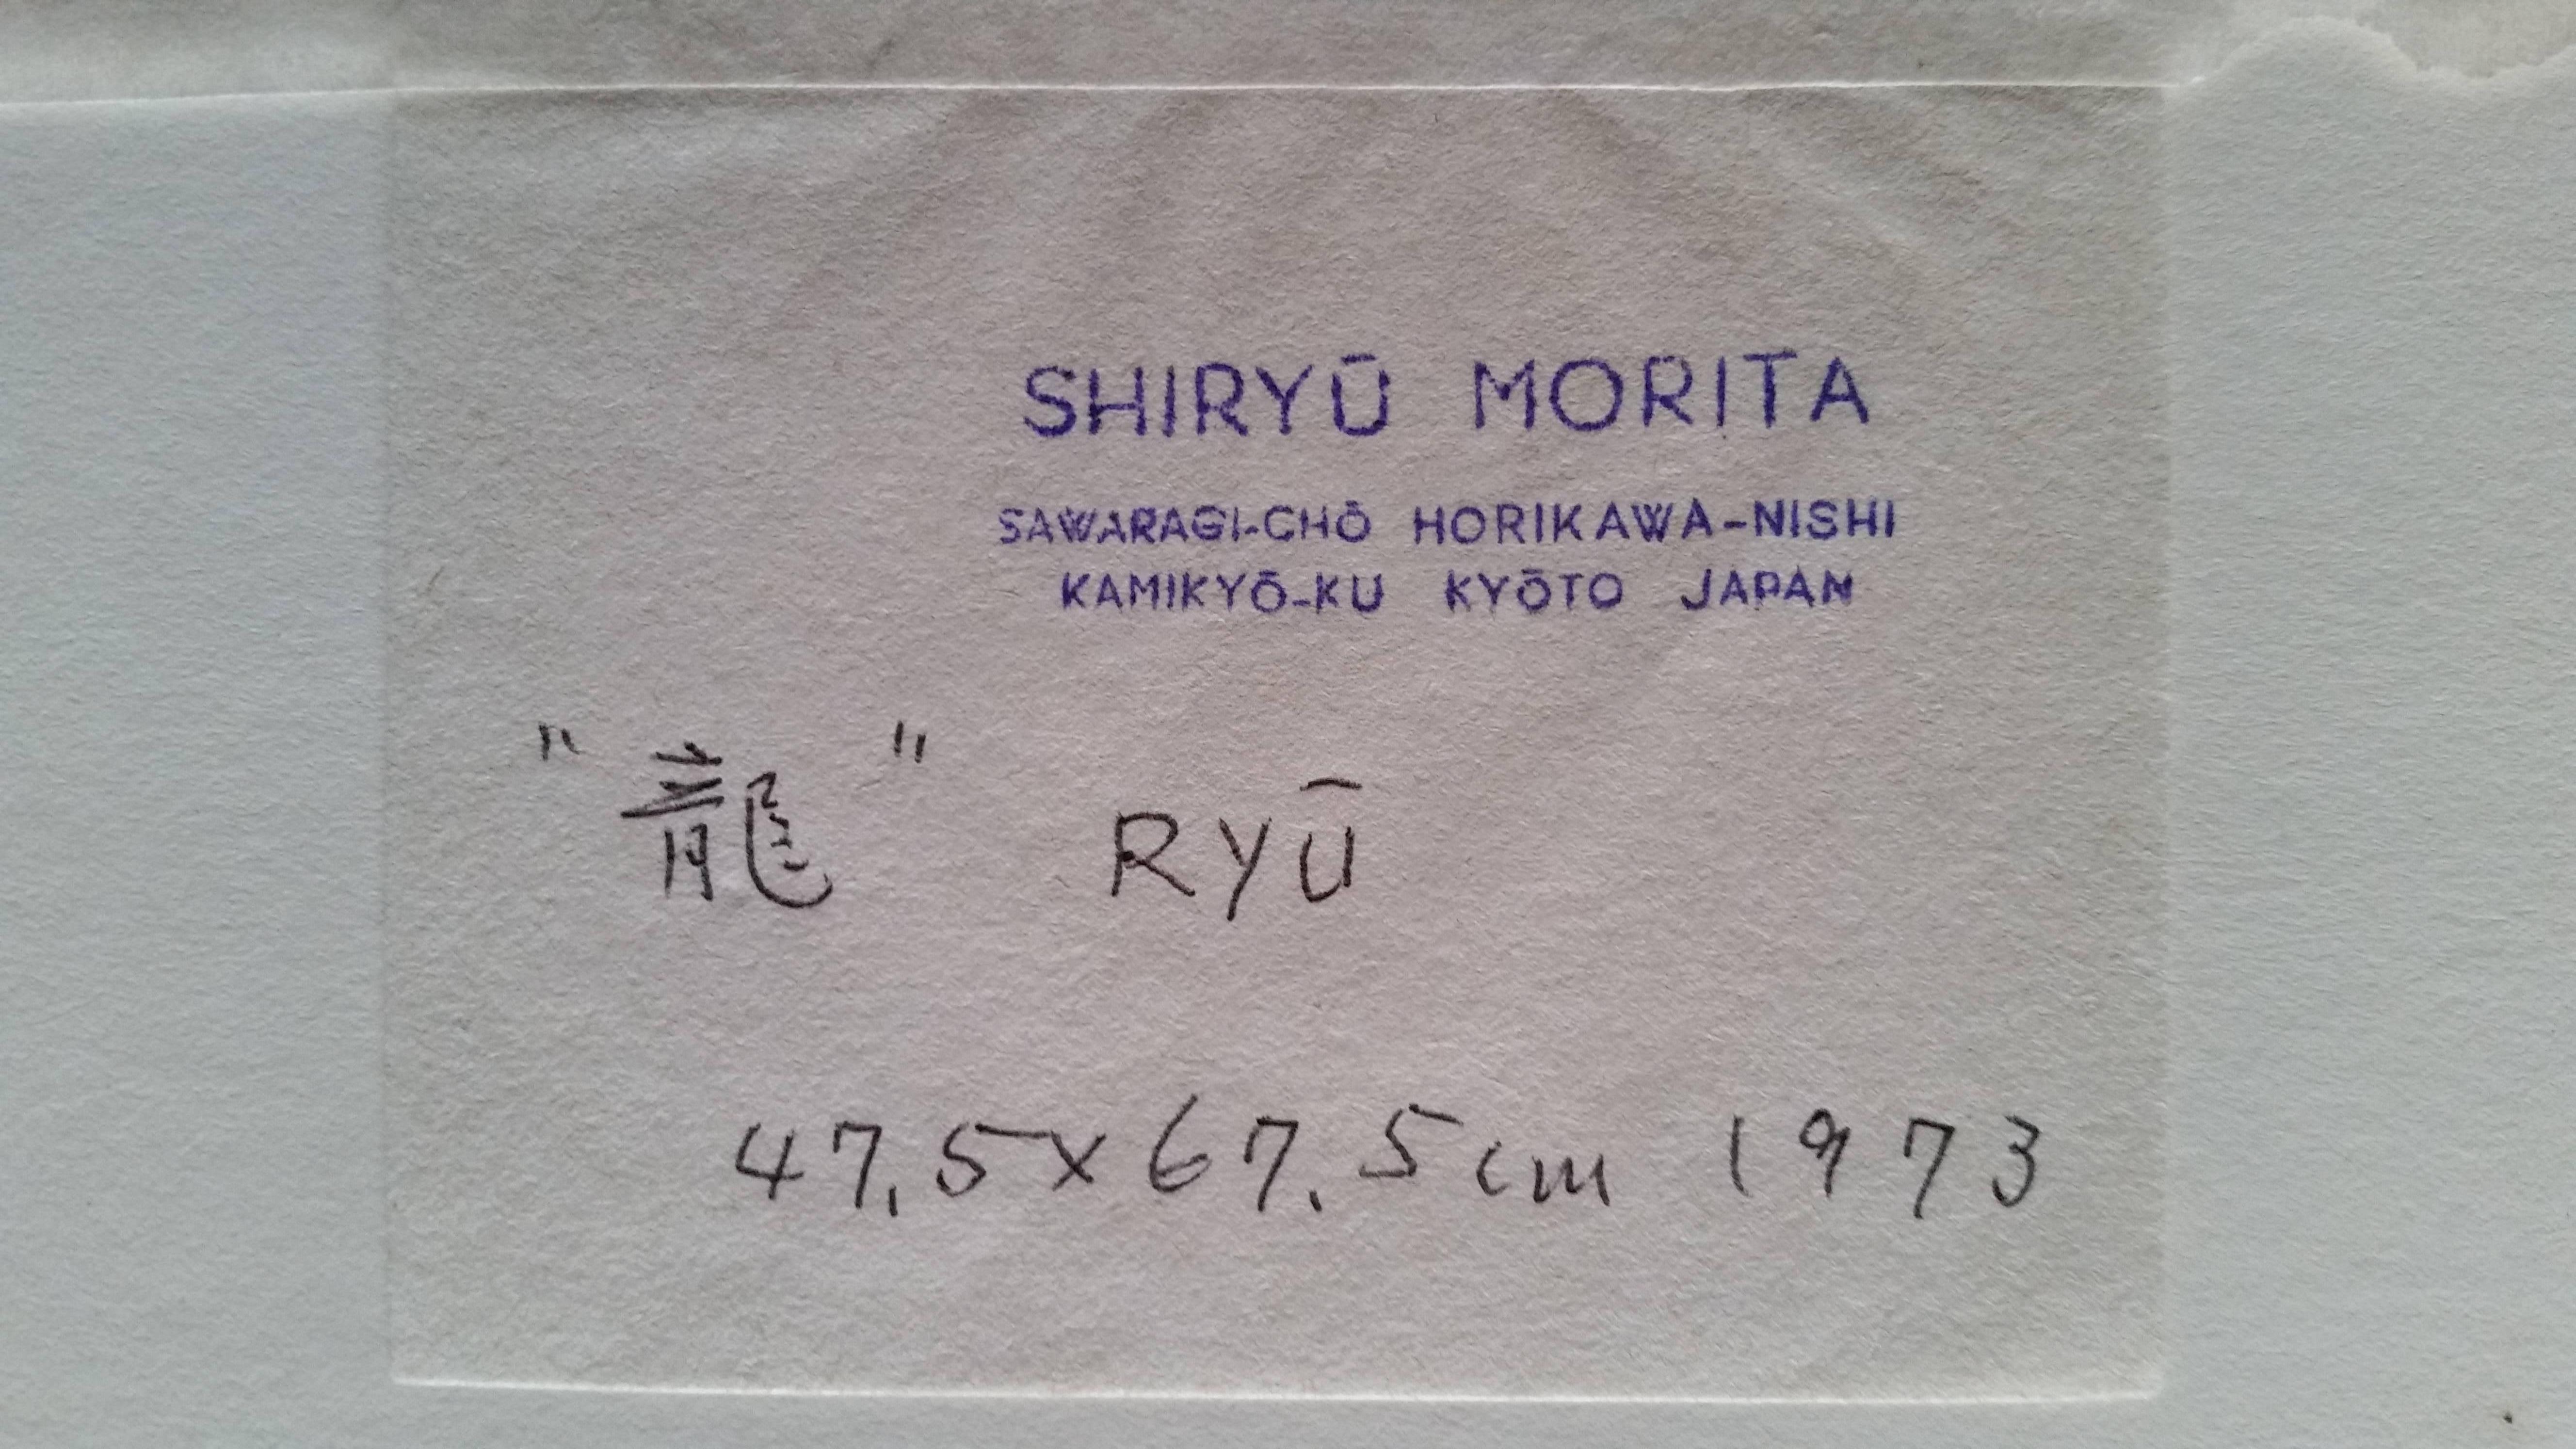 SHIRYŪ MORITA
SAWARAGI-CHŌ HORIKAWA-NISHI
KAMIKYŌ-KU KYŌTO JAPAN
"龍" RYŪ
47.5×67.5cm 1973